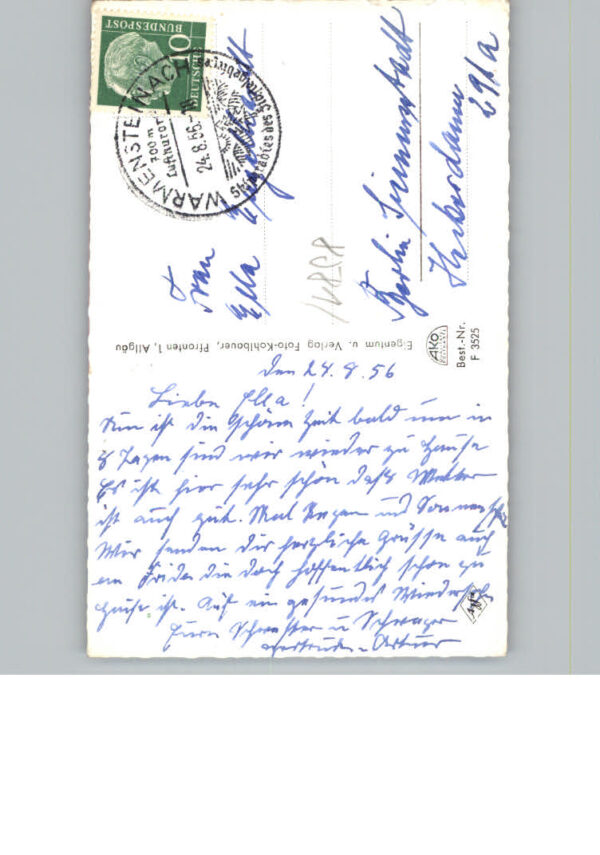 den 24.8.56
Liebe Ella!
Nun ist die schöne Zeit bald um in
8 Tagen sind wir wieder zu Hause
Es ist hier sehr schön daß Wetter
ist auch gut. Mal Regen und Sonnenschein
Wir senden dir herzliche Grüsse auch
an Frida die doch hoffentlich schon zu
Hause ist. Auf ein gesundes Wiedersehn
Eure Schwester u Schwager
Gertrude - Artur
Frau
Ella
Berlin Siemensstadt
Heckerdamm
291a
Eigentum u. Verlag Foto-Kohlbauer, Pfronten 1, Allgäu
AKO
Best.-Nr.
F 3525
DEUTSCHE
BUNDESPOST
10
WARMENSTEINACH
700 m
Luftkurort
24.8.56-18
des Fichtelgebirges